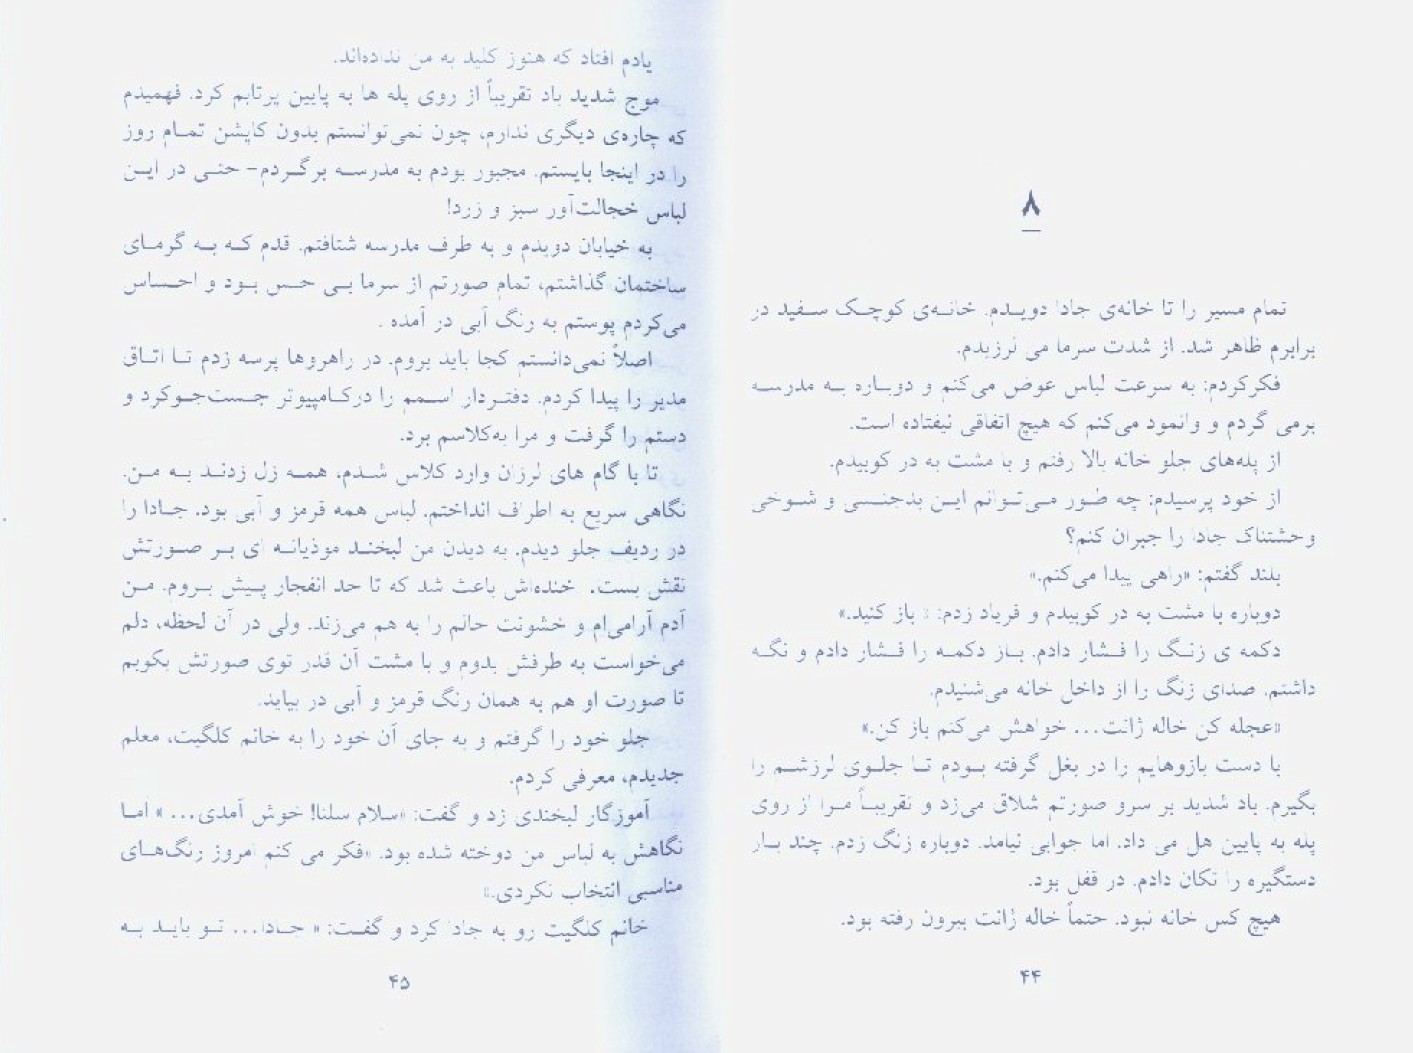 ۸
تمام مسیر را تا خانه‌ی جادا دویـدم. خانـه‌ی کوچـک سـفید در
برابرم ظاهر شد. از شدت سرما می لرزیدم.
فکرکردم: به سرعت لباس عوض می‌کنم و دوبـاره بـه مدرسـه
برمی گردم و وانمود می‌کنم که هیچ اتفاقی نیفتاده است.
از پله‌های جلو خانه بالا رفتم و با مشت به در کوبیدم.
از خود پرسیدم: چه طور مـی‌تـوانم ایـن بدجنسـی و شـوخی
وحشتناک جادا را جبران کنم؟
بلند گفتم: «راهی پیدا می‌کنم.»
دوباره با مشت به در کوبیدم و فریاد زدم: « باز کنید.»
دکمه ی زنـگ را فـشار دادم. بـاز دکمـه را فـشار دادم و نگـه
داشتم. صدای زنگ را از داخل خانه می‌شنیدم.
«عجله کن خاله ژانت... خواهش می‌کنم باز کن.»
با دست بازوهایم را در بغل گرفته بـودم تـا جلـوی لرزشـم را
بگیرم. باد شدید بر سرو صورتم شلاق می‌زد و تقریبـاً مـرا از روی
پله به پایین هل می داد. اما جوابی نیامد. دوباره زنگ زدم. چند بـار
دستگیره را تکان دادم. در قفل بود.
هیچ کس خانه نبود. حتماً خاله ژانت بیرون رفته بود.
۴۴
یادم افتاد که هنوز کلید به من نداده‌اند.
موج شدید باد تقریباً از روی پله ها به پایین پرتابم کرد. فهمیدم
که چاره‌ی دیگری ندارم، چون نمی‌توانستم بدون کاپشن تمـام روز
را در اینجا بایستم. مجبور بودم به مدرسـه برگـردم- حتـی در ایـن
لباس خجالت‌آور سبز و زرد!
به خیابان دویدم و به طرف مدرسه شتافتم. قدم کـه بـه گرمـای
ساختمان گذاشتم، تمام صورتم از سرما بـی حـس بـود و احـساس
می‌کردم پوستم به رنگ آبی در آمده .
اصلاً نمی‌دانستم کجا باید بروم. در راهروها پرسه زدم تـا اتـاق
مدیر را پیدا کردم. دفتـردار اسـمم را درکـامپیوتر جـست‌جـوکرد و
دستم را گرفت و مرا به‌کلاسم برد.
تا با گام های لرزان وارد کلاس شـدم، همـه زل زدنـد بـه مـن.
نگاهی سریع به اطراف انداختم. لباس همه قرمز و آبی بود. جـادا را
در ردیف جلو دیدم. به دیدن من لبخنـد موذیانـه ای بـر صـورتش
نقش بست. خنده‌اش باعث شد که تا حد انفجار پـیش بـروم. مـن
آدم آرامی‌ام و خشونت حالم را به هم می‌زند. ولی در آن لحظه، دلم
می‌خواست به طرفش بدوم و با مشت آن قدر توی صورتش بکوبم
تا صورت او هم به همان رنگ قرمز و آبی در بیاید.
جلو خود را گرفتم و به جای آن خود را به خانم کلگیت، معلم
جدیدم، معرفی کردم.
آموزگار لبخندی زد و گفت: «سلام سلنا! خوش آمدی... » امـا
نگاهش به لباس من دوخته شده بود. «فکر می کنم امروز رنگ‌هـای
مناسبی انتخاب نکردی.»
خانم کلگیت رو به جادا کرد و گفـت: « جـادا... تـو بایـد بـه
۴۵